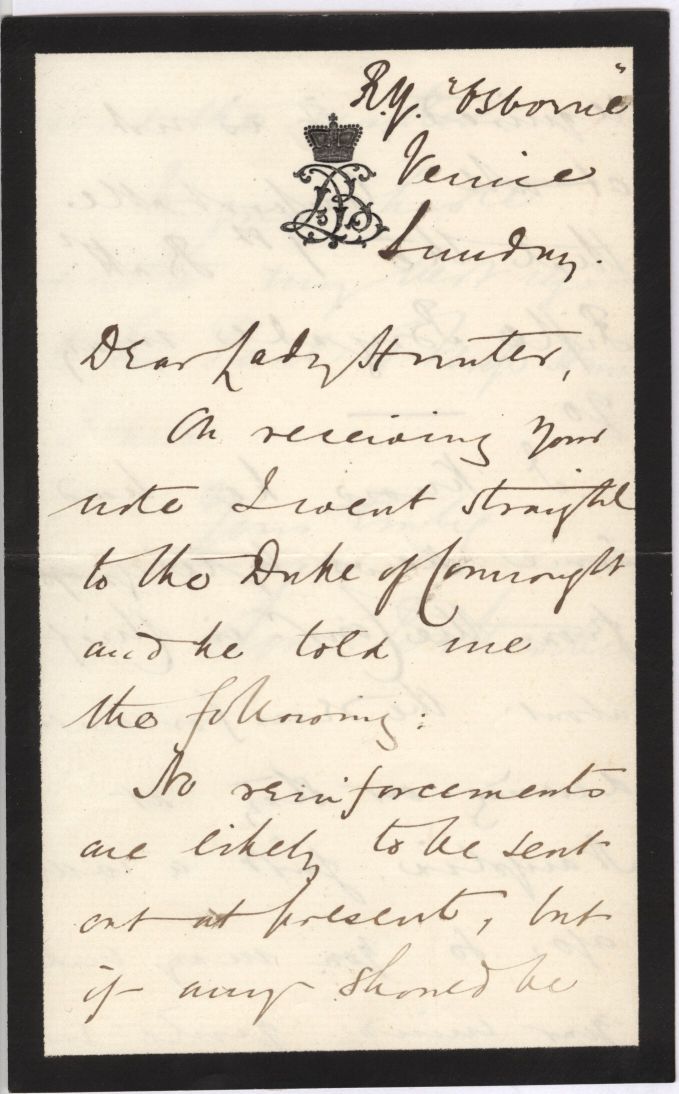 R.Y. "Osborne"
Venice
Sunday.
Dear Lady Hunter,
On receiving your
note I went straight
to the Duke of Connaught
and he told me
the following:
No reinforcements
are likely to be sent
out at present, but
if any should be